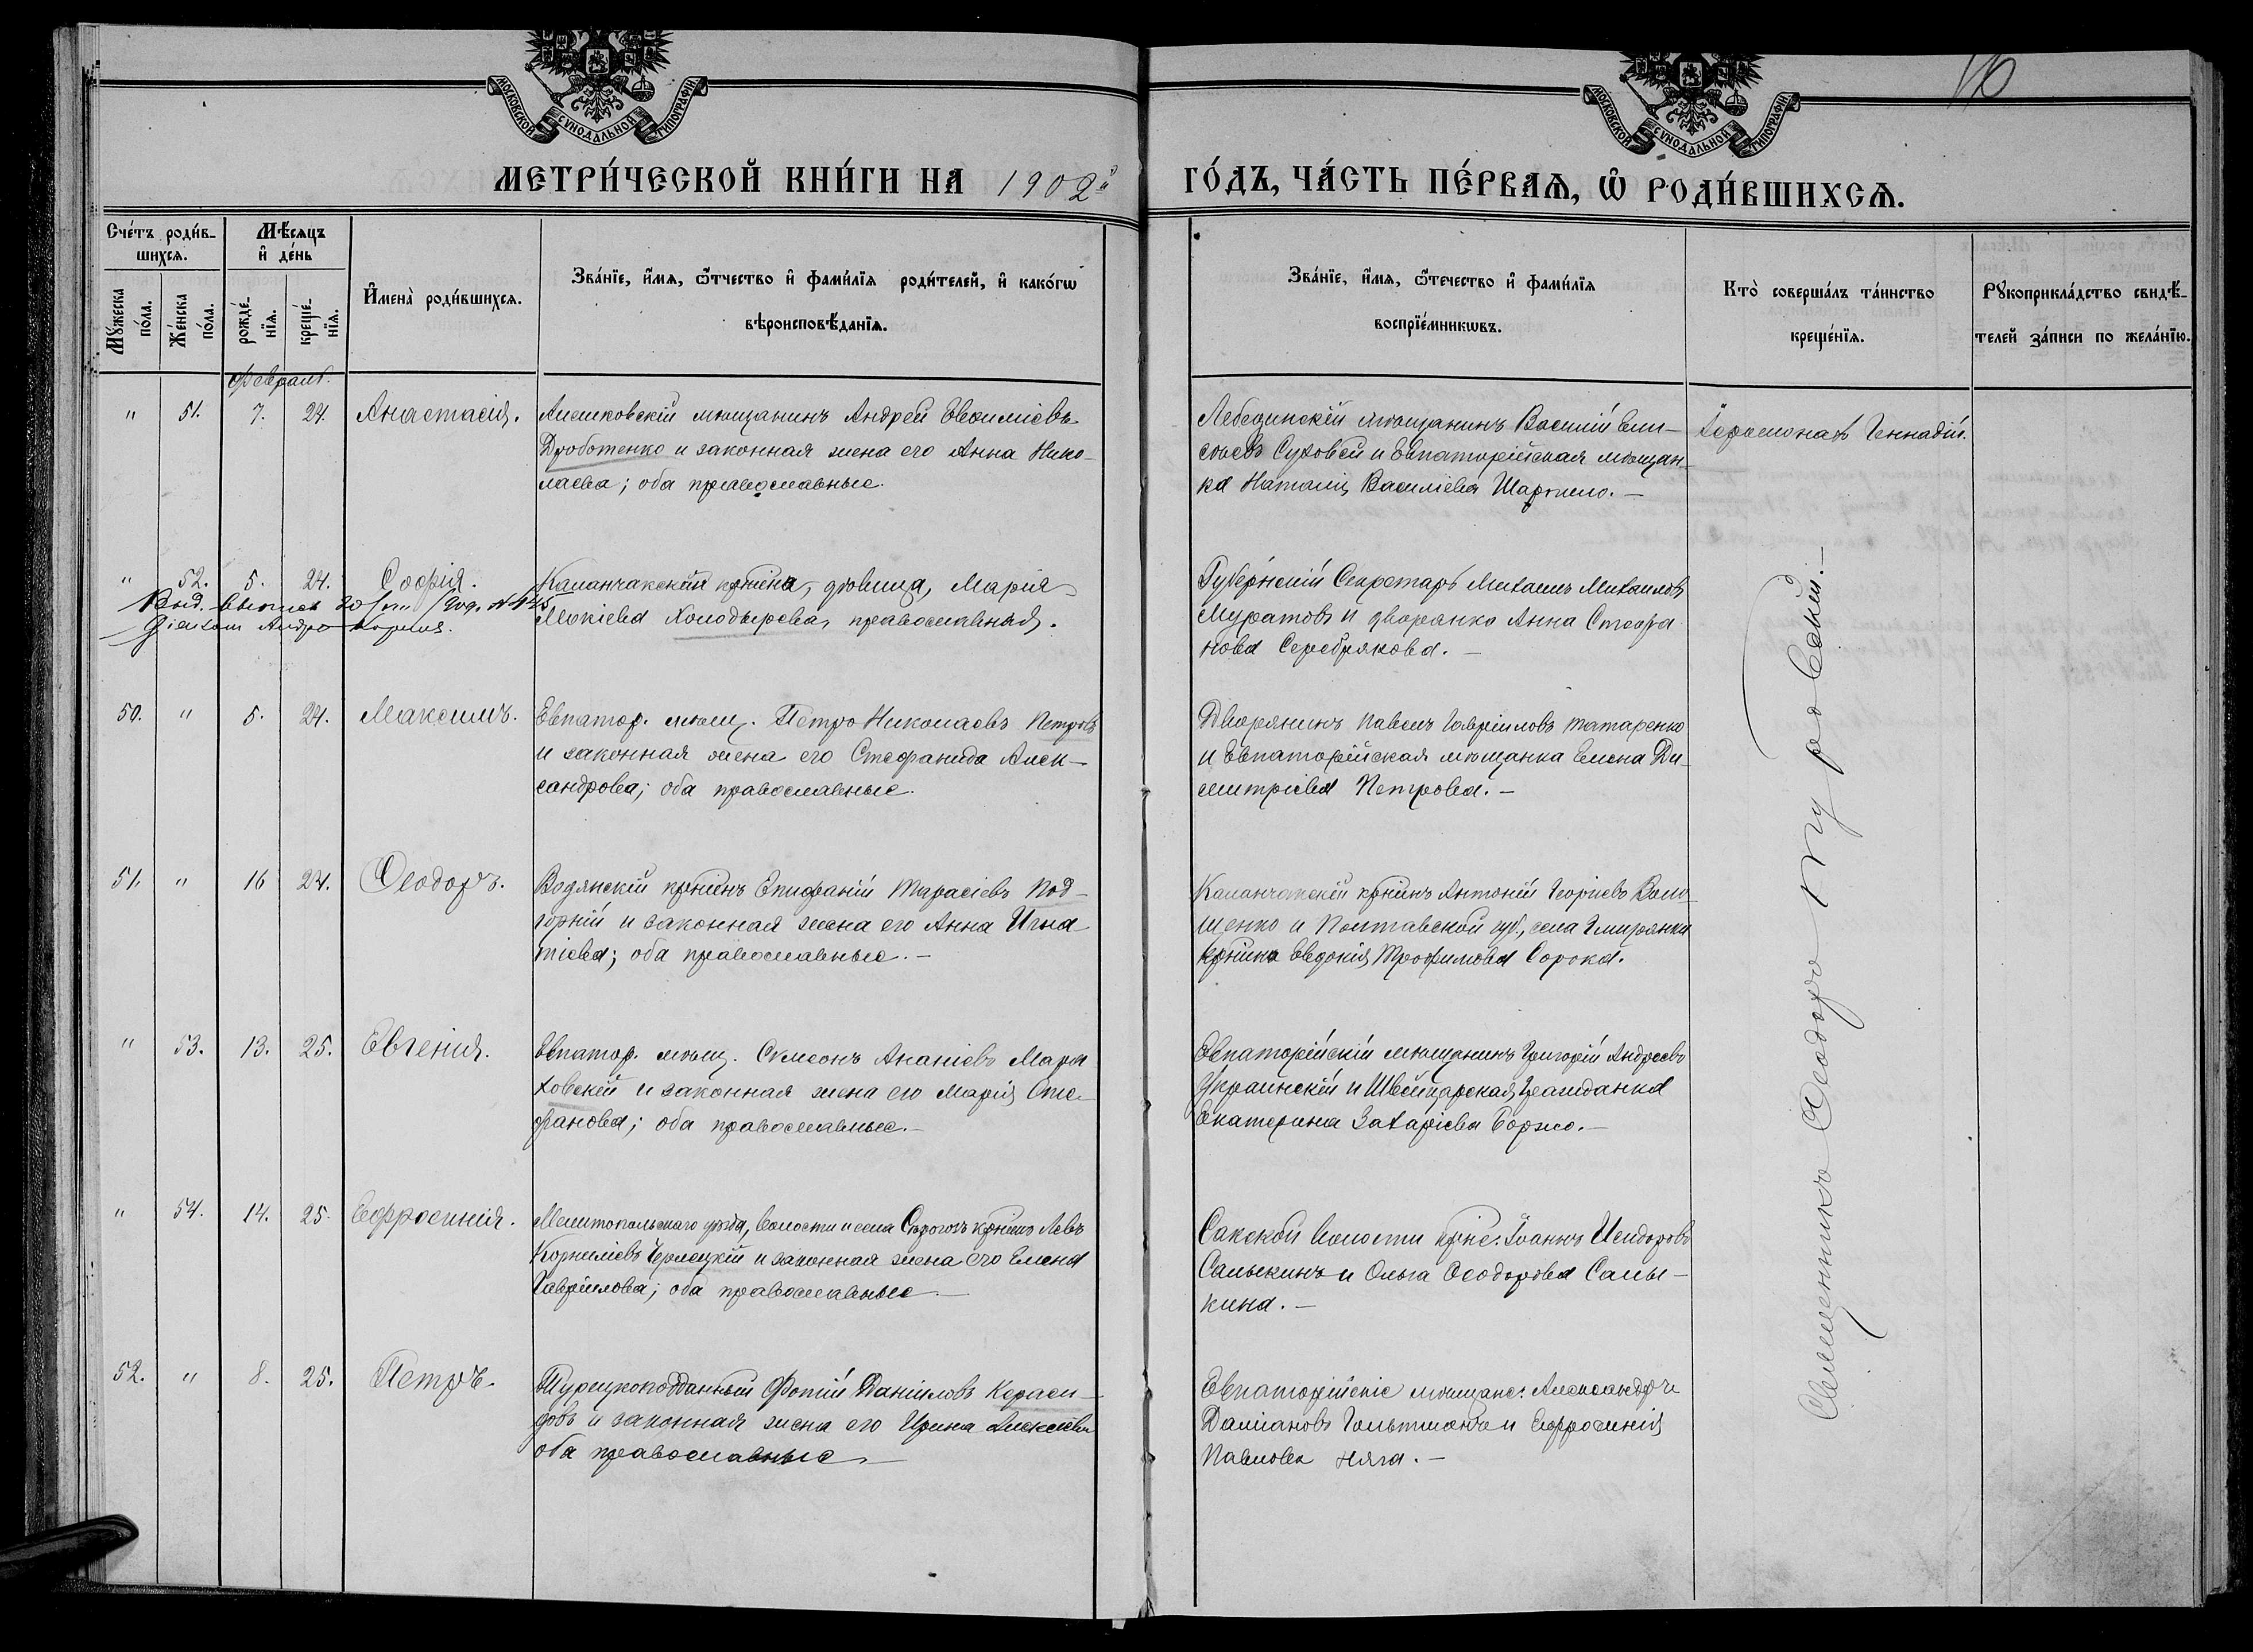 16
МОСКОВСКОЙ СѴНОДАЛЬНОЙ ТИПОГРАФІИ
МОСКОВСКОЙ СѴНОДАЛЬНОЙ ТИПОГРАФІИ
МЕТРИ́ЧЕСКОЙ КНИ́ГИ НА 1902й ГО́ДЪ, ЧА́СТЬ ПЕ́РВАѦ, Ѡ҆ РОДИ́ВШИХСѦ.
Сче́тъ роди́в-
шихсѧ.
Мꙋ́жеска по́ла.
Же́нска по́ла.
Мѣ́сѧцъ
и҆ де́нь
рожде́-
нїѧ.
креще́-
нїѧ.
И҆мена̀ роди́вшихсѧ.
Зва́нїе, и҆́мѧ, ѻ҆́тчество и҆ фами́лїѧ роди́телей, и҆ како́гѡ
вѣроисповѣ́данїѧ.
Зва́нїе, и҆́мѧ, ѻ҆́течество и҆ фами́лїѧ
воспрїе́мникѡвъ.
Кто̀ соверша́лъ та́инство
креще́нїѧ.
Рꙋкоприкла́дство свидѣ́-
телей за́писи по жела́нїю.
Февраль.
" 51. 7. 24. Анастасія.
Алешковскій мѣщанинъ Андрей Евѳиміевъ
Дроботенко и законная жена его Анна Нико-
лаева; оба православные.
Лебединскій мѣщанинъ Василій
Суховей и Евпаторійская мѣщан-
ка Наталія Василіева Шарпило. —
Іеромонахъ Геннадій.
" 52. 5. 24. Софія.
Каланчакская кр̃нина, дѣвица, Марія
Мокіева Холодырева, православная.
Выд. выпись
Губернскій Секретарь Михаилъ Михаиловъ
Муратовъ и дворянка Анна Стефа
нова Серебрякова. —
50. " 5. 24. Максимъ.
Евпатор. мѣщ. Петръ Николаевъ Петровъ
и законная жена его Стефанида Алек-
сандрова; оба православные.
Дворянинъ Павелъ Гавріиловъ Татаренко
и Евпаторійская мѣщанка Елена Ди-
митріева Петрова. —
51. " 16 24. Ѳеодоръ.
Водянскій кр̃нинъ Епифаній Тарасіевъ Под-
горній и законная жена его Анна Игна
тіева; оба православные. —
Каланчакскій кр̃нинъ Антоній Георгіевъ Воло-
щенко и Полтавской губ., села
кр̃нинка Евдокія Трофимова Сорока.
" 53. 13. 25. Евгенія.
Евпатор. мѣщ. Симеонъ Ананіевъ Мара
ховскій и законная жена его Марія Сте-
фанова; оба православные. —
Евпаторійскій мѣщанинъ Григорій Андреевъ
Украинскій и Швейцарская Гражданка
Екатерина Захаріева Боржо. —
" 54. 14. 25. Ефросинія.
Мелитопольскаго уѣзда, волости и села Сѣрогозъ кр̃нинъ Левъ
Корниліевъ Чернецкій и законная жена его Елена
Гавріилова; оба православные. —
Сакской волости кр̃не: Іоаннъ Исидоровъ
Салыкинъ и Ольга Ѳеодорова Салы-
кина. —
52. " 8. 25. Петръ.
Турецкоподданный Фотій Даніиловъ Кераси-
довъ и законная жена его Ирина Алексіева
оба православные. —
Евпаторійскіе мѣщане: Александръ
Даміановъ Гольтманъ и Ефросинія
Павлова Няга. —
Священникъ Ѳеодоръ